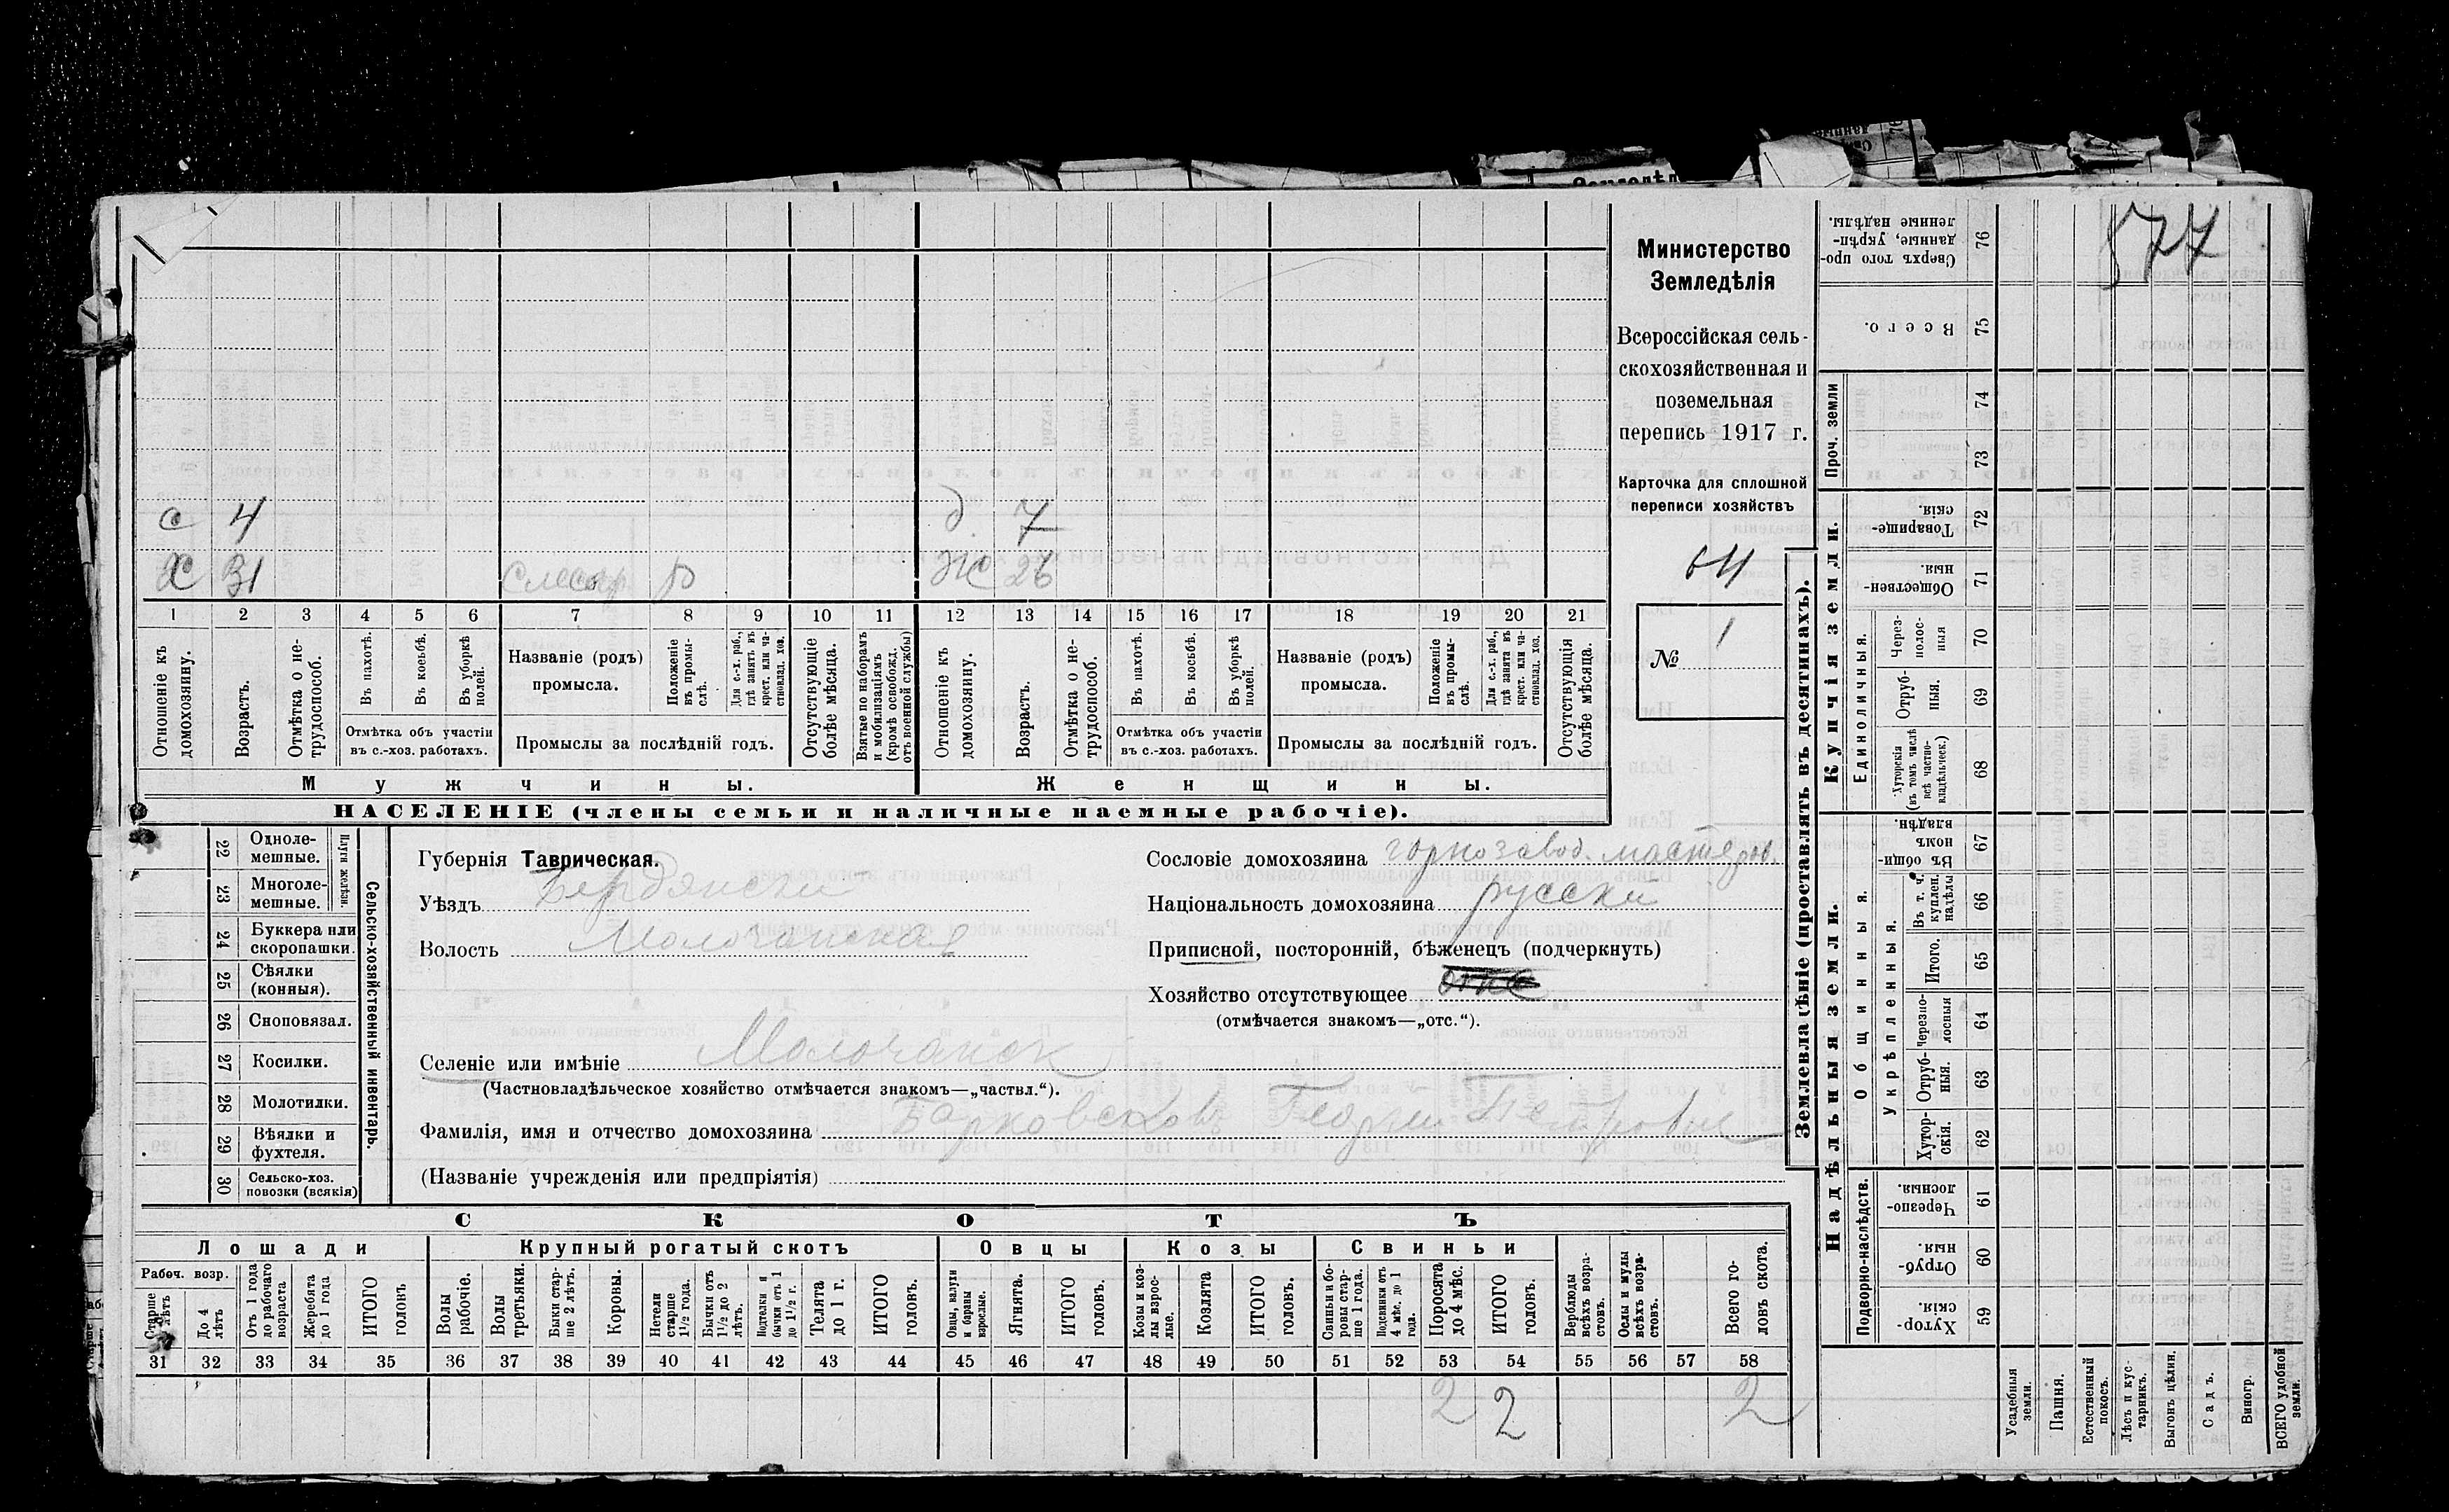 577
Министерство
Земледѣлія
Всероссійская сель-
скохозяйственная и
поземельная
перепись 1917 г.
Карточка для сплошной
переписи хозяйствъ
64
№ 1
с 4 д 7
Х 31 слесар р Ж 26
1 2 3 4 5 6 7 8 9 10 11 12 13 14 15 16 17 18 19 20 21
Отношеніе къ домохозяину.
Возрастъ.
Отмѣтка о не-трудоспособ.
Въ пахотѣ.
Въ косьбѣ.
Въ уборкѣ полей.
Отмѣтка объ участіи
въ с.-хоз. работахъ.
Названіе (родъ)
промысла.
Положеніе въ промы-слѣ.
Для с.-х. раб., гдѣ занятъ въ крест. или ча-стновлад. хоз.
Промыслы за послѣдній годъ.
Отсутствующіе болѣе мѣсяца.
Взятые по наборамъ и мобилизаціямъ (кромѣ освобожд. отъ военной службы)
Отношеніе къ домохозяину.
Возрастъ.
Отмѣтка о не-трудоспособ.
Въ пахотѣ.
Въ косьбѣ.
Въ уборкѣ полей.
Отмѣтка объ участіи
въ с.-хоз. работахъ.
Названіе (родъ)
промысла.
Положеніе въ промы-слѣ.
Для с.-х. раб., гдѣ занята въ крест. или ча-стновлад. хоз.
Промыслы за послѣдній годъ.
Отсутствующія болѣе мѣсяца.
Мужчины. Женщины.
НАСЕЛЕНІЕ (члены семьи и наличные наемные рабочіе).
22 Одноле-мешные.
23 Многоле-мешные.
Плуги желѣзн.
24 Буккера или скоропашки.
25 Сѣялки (конныя).
26 Сноповязал.
27 Косилки.
28 Молотилки.
29 Вѣялки и фухтеля.
30 Сельско-хоз. повозки (всякія)
Сельско-хозяйственный инвентарь.
Губернія Таврическая.
Уѣздъ Бердянски
Волость Молочанская
Селеніе или имѣніе Молочанск
(Частновладѣльческое хозяйство отмѣчается знакомъ—„частвл.“).
Фамилія, имя и отчество домохозяина Барковсковъ Георги Петрович
(Названіе учрежденія или предпріятія)
Сословіе домохозяина горнозавод. мастеров.
Національность домохозяина русски
Приписной, посторонній, бѣженецъ (подчеркнуть)
Хозяйство отсутствующее
(отмѣчается знакомъ—„отс.“).
СКОТЪ
Лошади Крупный рогатый скотъ Овцы Козы Свиньи
Рабоч. возр.
Старше 4 лѣтъ
До 4 лѣтъ
Отъ 1 года до рабочаго возраста
Жеребята до 1 года
ИТОГО головъ
Волы рабочіе.
Волы третьяки.
Быки стар-ше 2 лѣтъ.
Коровы.
Нетели старше 1½ года.
Бычки отъ 1½ до 2 лѣтъ.
Подтелки и бычки отъ 1 до 1½ г.
Телята до 1 г.
ИТОГО головъ.
Овцы, валухи и бараны взрослые.
Ягнята.
ИТОГО головъ.
Козы и коз-лы взрос-лые.
Козлята
ИТОГО головъ.
Свиньи и бо-ровы стар-ше 1 года.
Подсвинки отъ 4 мѣс. до 1 года.
Поросята до 4 мѣс.
ИТОГО головъ.
Верблюды всѣхъ возра-стовъ.
Ослы и мулы всѣхъ возра-стовъ.
Всего го-ловъ скота.
31 32 33 34 35 36 37 38 39 40 41 42 43 44 45 46 47 48 49 50 51 52 53 54 55 56 57 58
2 2 2
Землевладѣніе (проставлять въ десятинахъ).
Надѣльныя земли. Купчія земли.
Подворно-наслѣдств.
Общинныя.
Укрѣпленныя.
Единоличныя.
Проч. земли
Сверхъ того про-данные, укрѣп-ленные надѣлы. 76
Всего. 75
74
73
Товарище-скія. 72
Обществен-ныя. 71
Через-полос-ныя 70
Отруб-ныя. 69
Хуторскія (въ томъ числѣ всѣ частно-владѣльческ.) 68
Въ общин-номъ владѣн. 67
Въ т. ч. куплен. надѣлы 66
Итого. 65
Черезпо-лосныя 64
Отруб-ныя. 63
Хутор-скія. 62
Черезпо-лосныя. 61
Отруб-ныя 60
Хутор-скія. 59
Усадебныя земли.
Пашня.
Естественный покосъ.
Лѣсъ и кус-тарникъ.
Выгонъ цѣлин.
Садъ.
Виногр.
ВСЕГО удобной земли.